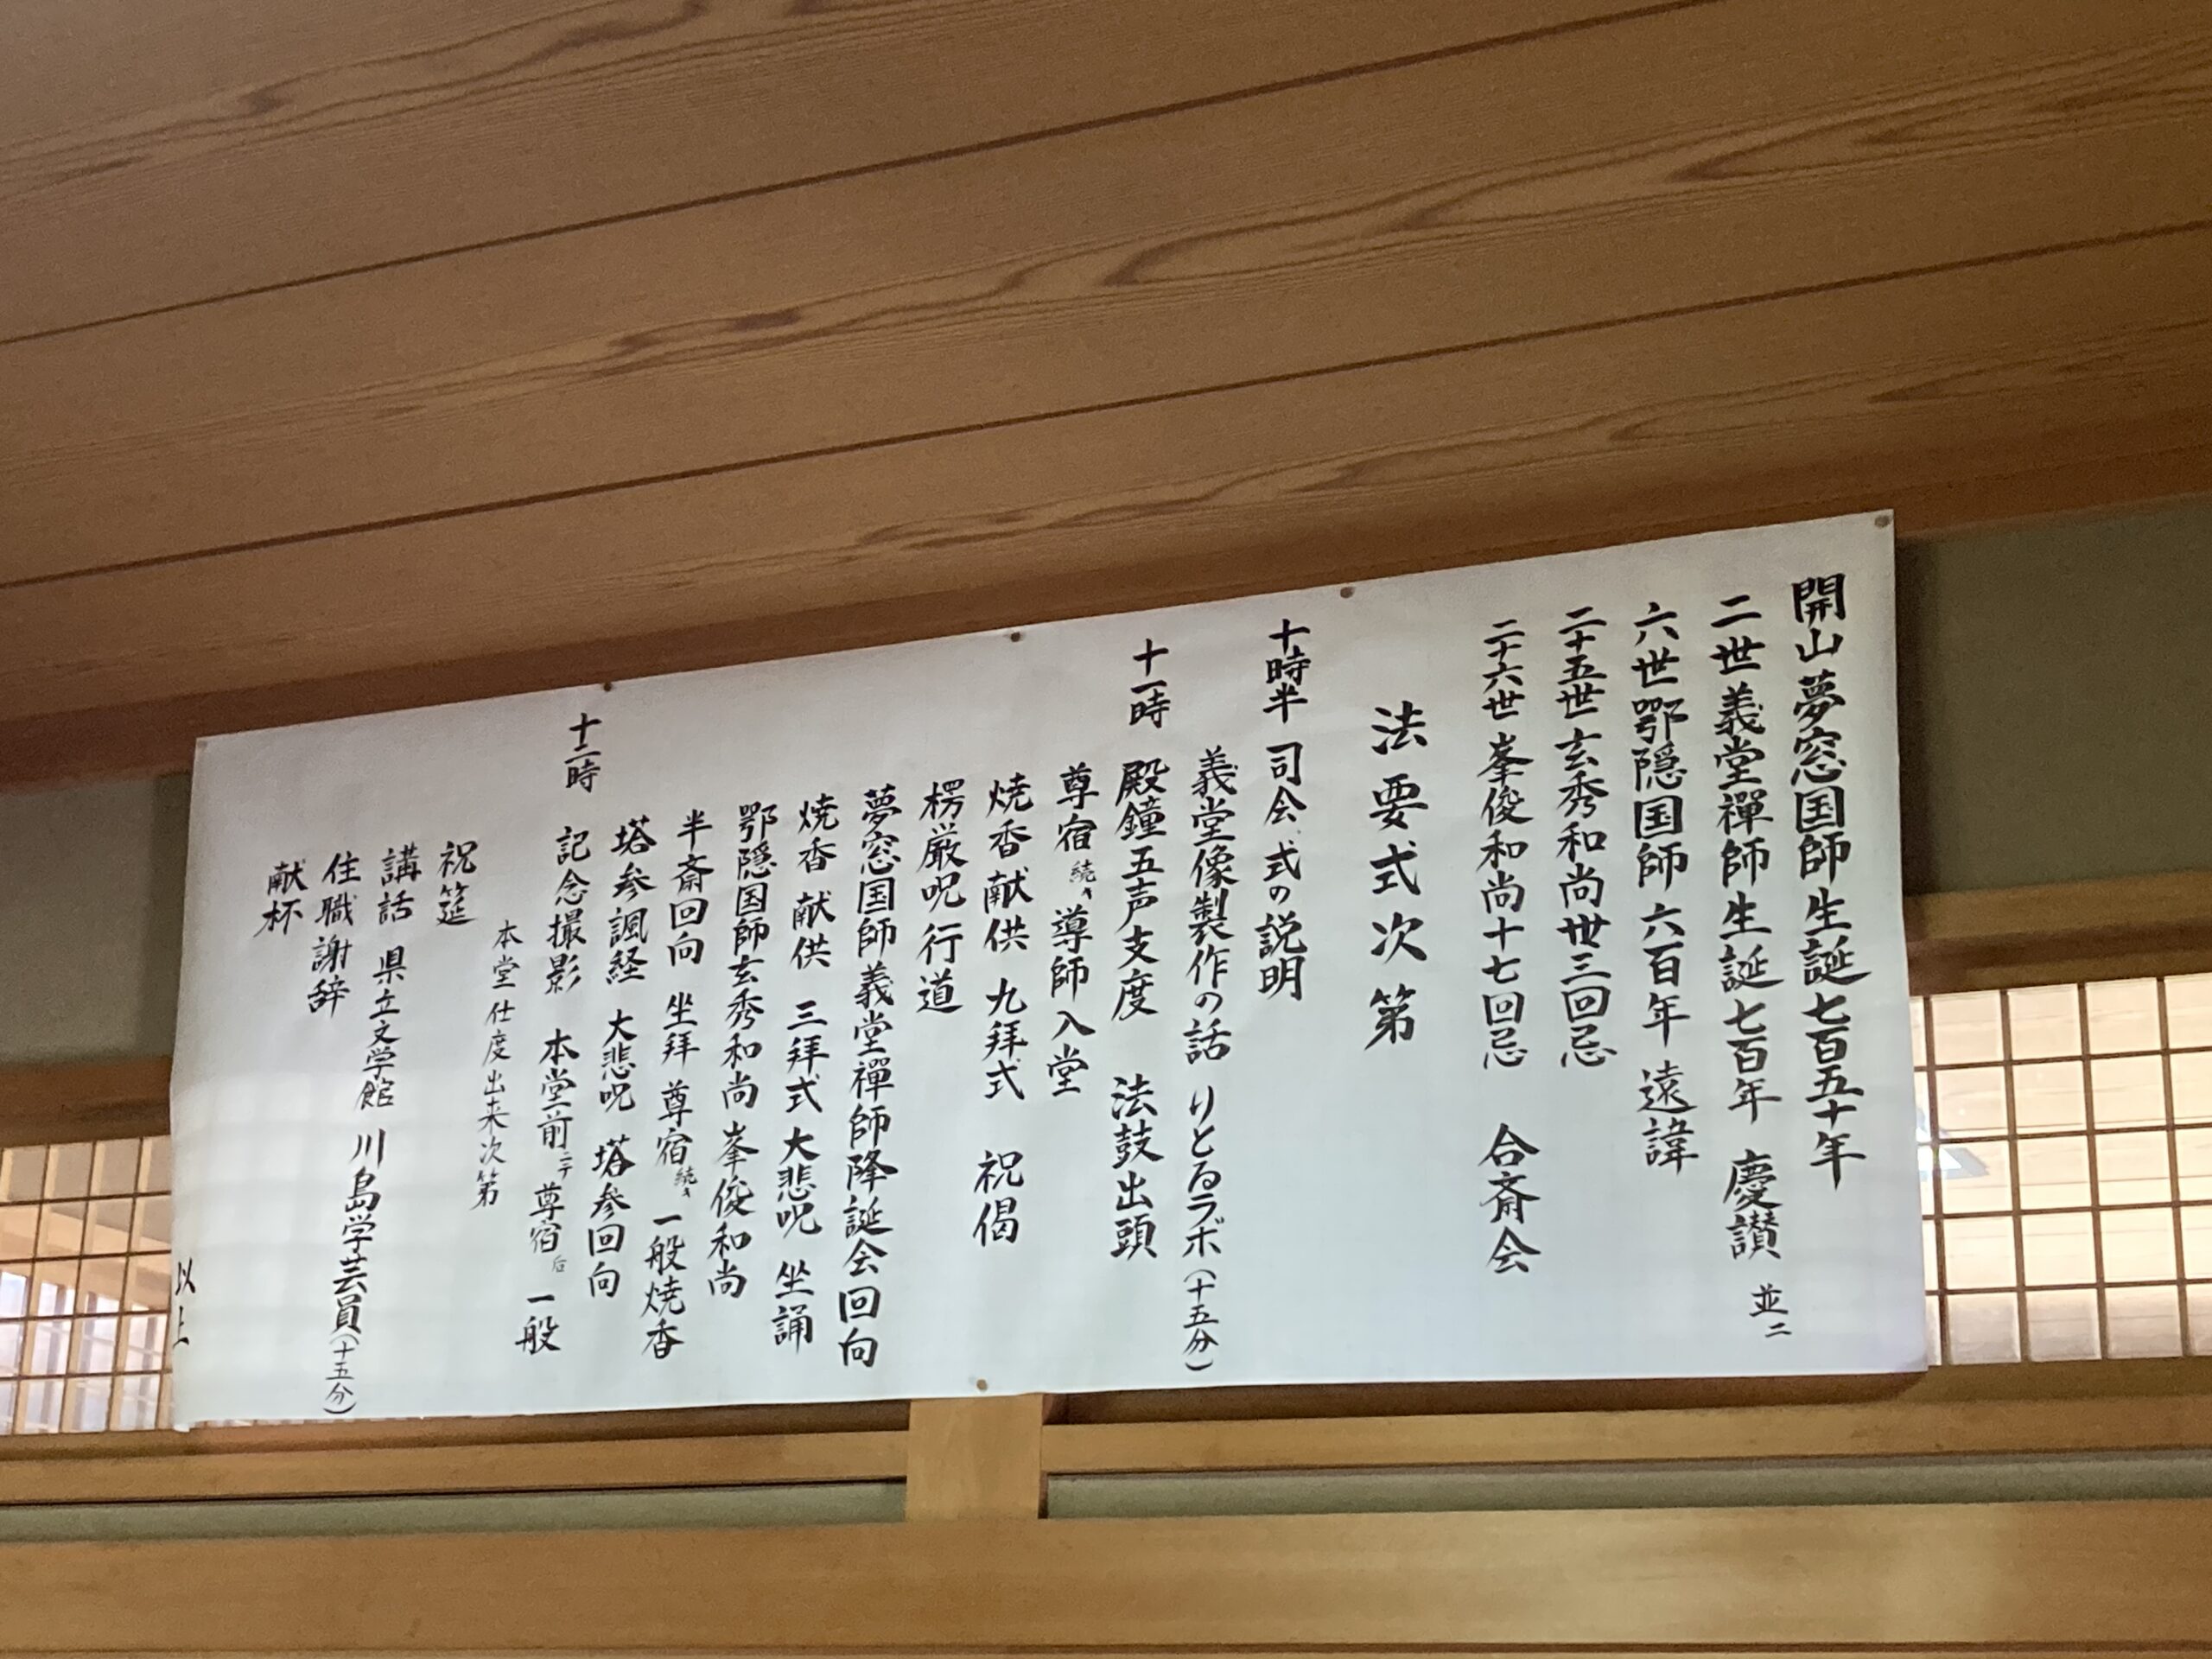 開山夢窓国師生誕七百五十年
二世義堂禅師生誕七百年 慶讃 並ニ
六世鄂隠国師六百年遠諱
二十五世玄秀和尚卅三回忌
二十六世峯俊和尚十七回忌 合斎会
法要式次第
十時半 司会 式の説明
義堂像製作の話 りとるラボ(十五分)
十一時 殿鐘五声支度 法鼓出頭
尊宿 続イ 導師入堂
焼香献供 九拝式 祝偈
楞厳呪行道
夢窓国師 義堂禅師降誕会回向
焼香 献供 三拝式 大悲呪 坐誦
鄂隠国師玄秀和尚 峯俊和尚
半斎回向 坐拝 尊宿 続イ 一般焼香
塔参諷経 大悲呪 塔参回向
十二時 記念撮影 本堂前ニテ 尊宿 后 一般
本堂仕度出来次第
祝筵
講話 県立文学館 川島学芸員(十五分)
住職謝辞
献杯
以上